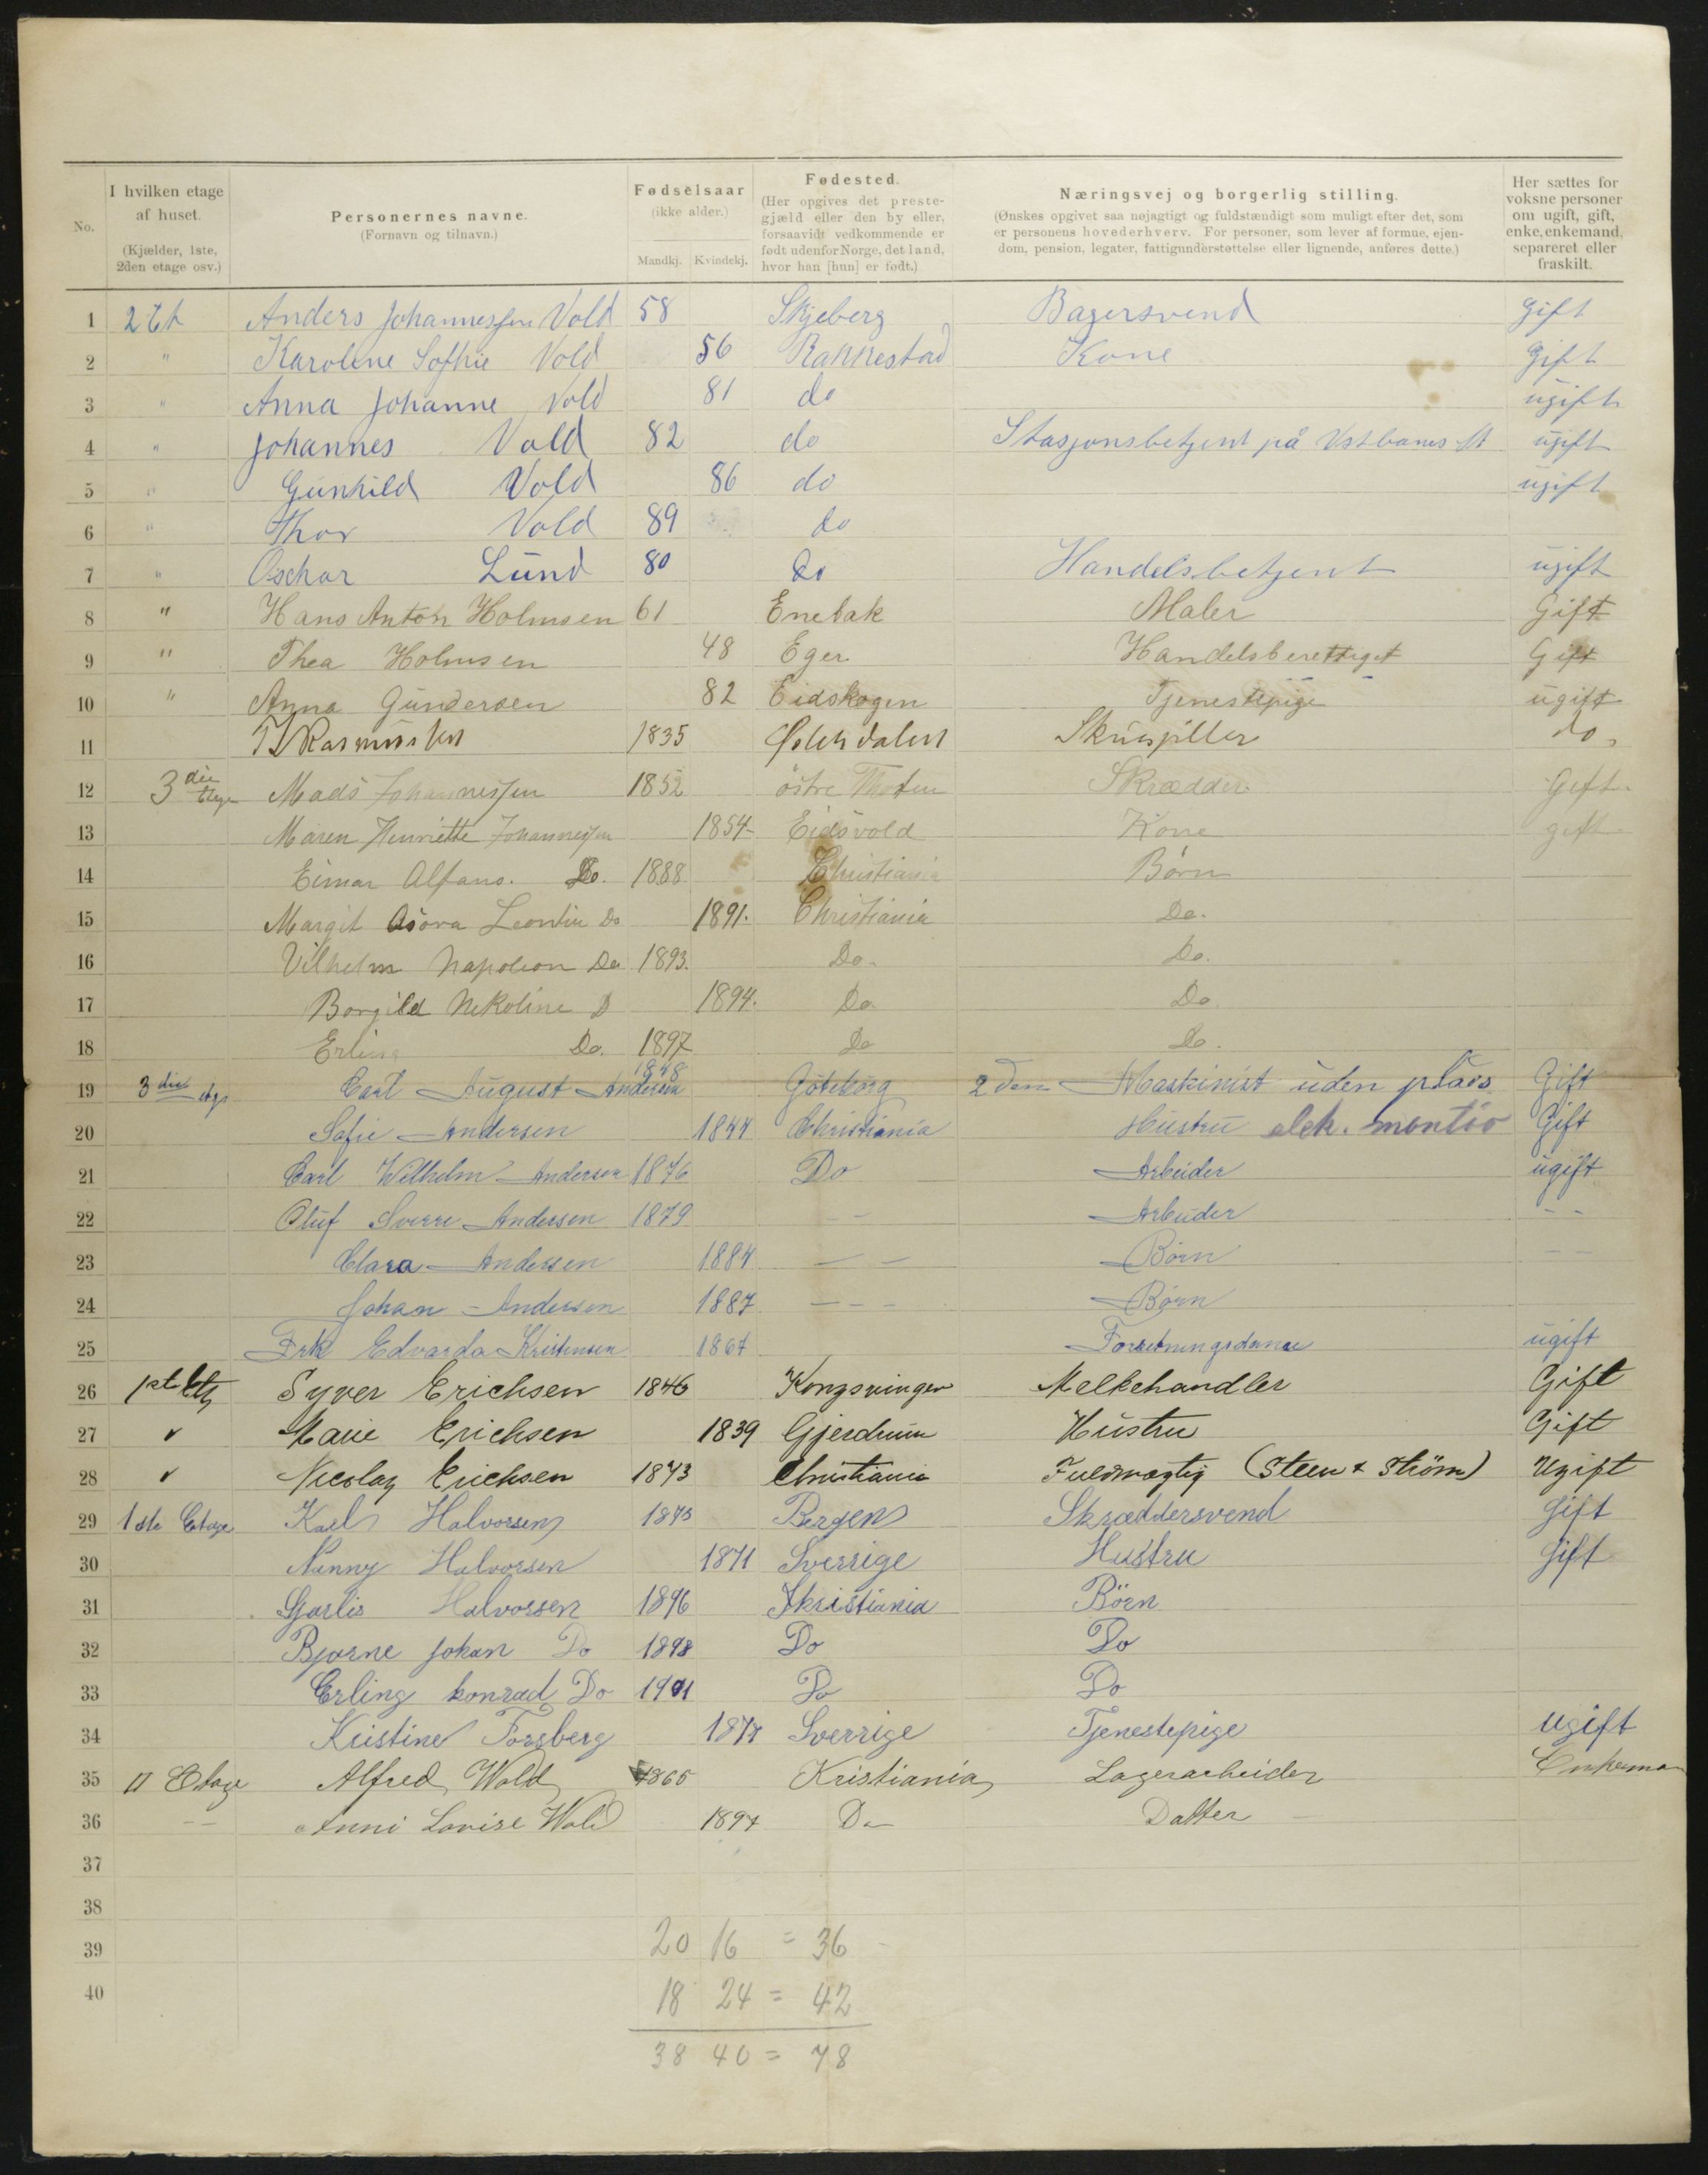 No.
I hvilken etage af huset.
(Kjælder, 1ste, 2den etage osv.)
Personernes navne.
(Fornavn og tilnavn.)
Fødselsaar
(ikke alder.)
Mandkj. Kvindekj.
Fødested.
(Her opgives det prestegjæld eller den by eller, forsaavidt vedkommende er født udenfor Norge, det land, hvor han [hun] er født.)
Næringsvej og borgerlig stilling.
(Ønskes opgivet saa nøjagtigt og fuldstændigt som muligt efter det, som er personens hovederhverv. For personer, som lever af formue, ejendom, pension, legater, fattigunderstøttelse eller lignende, anføres dette.)
Her sættes for voksne personer om ugift, gift, enke, enkemand, separeret eller fraskilt.
1 2 Et Anders Johannessen Vold 58 Skjeberg Bagersvend gift
2 " Karoline Sofhie Vold 56 Rakkestad Kone gift
3 " Anna Johanne Vold 81 do ugift
4 " Johannes Vold 82 do Stasjonsbetjent på Vstbanes St ugift
5 " Gunhild Vold 86 do ugift
6 " Thor Vold 89 do
7 " Oschar Lund 80 do Handelsbetjent ugift
8 " Hans Anton Holmsen 61 Enebak Maler Gift
9 " Thea Holmsen 48 Eger Handelsberettiget Gift
10 " Anna Gundersen 82 Eidskogen Tjenestepige ugift
11 Rasmussen 1835 Skuespiller do
12 3 die Etage Mads Johannessen 1852 östre Thoten Skrædder Gift
13 Maren Henriette Johannessen 1854 Eidsvold Kone gift
14 Einar Alfans. Do. 1888 Christiania Børn
15 Margit Asora Leontin Do 1891. Christiania Do.
16 Vilhelm Napoleon Do 1893. Do. Do.
17 Borgild Nekoline D 1894. Do Do.
18 Erling Do. 1897 Do Do.
19 3 die etg. Carl August Andersen 1848 Göteborg 2den Maskinist uden plads Gift
20 Sofie Andersen 1844 Christiania Hustru elek. montör Gift
21 Carl Wilhelm Andersen 1876 Do Arbeider ugift
22 Oluf Sverre Andersen 1879 — — Arbeider - -
23 Clara Andersen 1884 — — Børn — —
24 Johan Andersen 1887 — - - Børn
25 Frk Edvarda Kristensen 1867 Forretningsdame ugift
26 1ste Etg Syver Erichsen 1846 Kongsvinger Melkehandler Gift
27 " Marie Erichsen 1839 Gjerdrum Hustru Gift
28 " Nicolay Erichsen 1873 Christiania Fuldmægtig (Steen & Strøm) Ugift
29 1ste Etage Karl Halvorsen 1873 Bergen Skræddersvend gift
30 Nanny Halvorsen 1871 Sverrige Hustru gift
31 Halvorsen 1896 Kristiania Börn
32 Bjarne Johan Do 1898 Do Do
33 Erling Konrad Do 1901 Do Do
34 Kristine Forsberg 1877 Sverrige Tjenestepige ugift
35 II Etage Alfred Wold 1865 Kristiania Lagerarbeider Enkeman
36 — — Anni Lovise Wold 1894 Do Datter
37
38
39 20 16 = 36
40 18 24 = 42
38 40 = 78